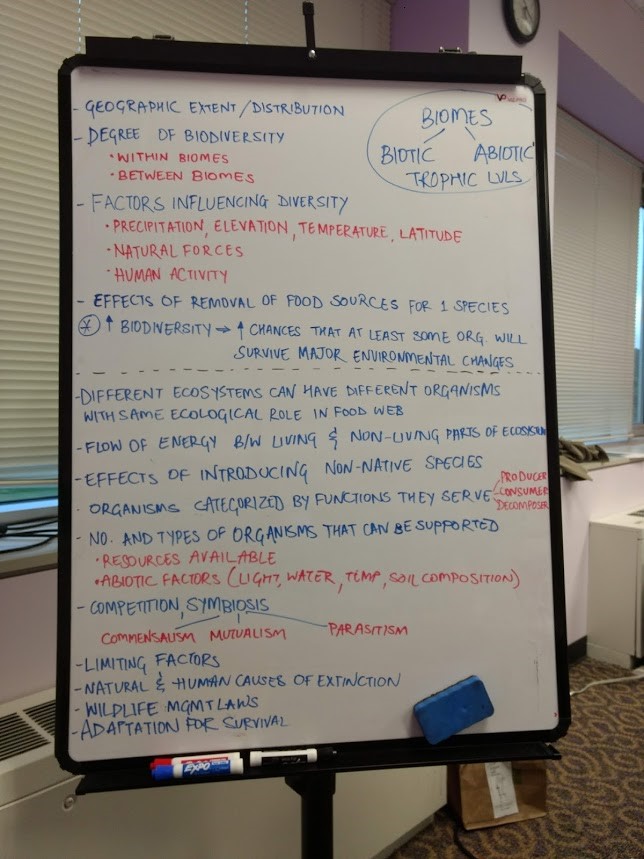 - GEOGRAPHIC EXTENT/DISTRIBUTION
- DEGREE OF BIODIVERSITY
• WITHIN BIOMES
• BETWEEN BIOMES
BIOMES
BIOTIC ABIOTIC
TROPHIC LVLS
- FACTORS INFLUENCING DIVERSITY
• PRECIPITATION, ELEVATION, TEMPERATURE, LATITUDE
• NATURAL FORCES
• HUMAN ACTIVITY
- EFFECTS OF REMOVAL OF FOOD SOURCES FOR 1 SPECIES
↑ BIODIVERSITY → ↑ CHANCES THAT AT LEAST SOME ORG. WILL
SURVIVE MAJOR ENVIRONMENTAL CHANGES
- DIFFERENT ECOSYSTEMS CAN HAVE DIFFERENT ORGANISMS
WITH SAME ECOLOGICAL ROLE IN FOOD WEB
- FLOW OF ENERGY B/W LIVING & NON-LIVING PARTS OF ECOSYSTEM
- EFFECTS OF INTRODUCING NON-NATIVE SPECIES
- ORGANISMS CATEGORIZED BY FUNCTIONS THEY SERVE
PRODUCER
CONSUMER
DECOMPOSER
- NO. AND TYPES OF ORGANISMS THAT CAN BE SUPPORTED
• RESOURCES AVAILABLE
• ABIOTIC FACTORS (LIGHT, WATER, TEMP, SOIL COMPOSITION)
- COMPETITION, SYMBIOSIS
COMMENSALISM MUTUALISM PARASITISM
- LIMITING FACTORS
- NATURAL & HUMAN CAUSES OF EXTINCTION
- WILDLIFE MGMT LAWS
- ADAPTATION FOR SURVIVAL
EXPO